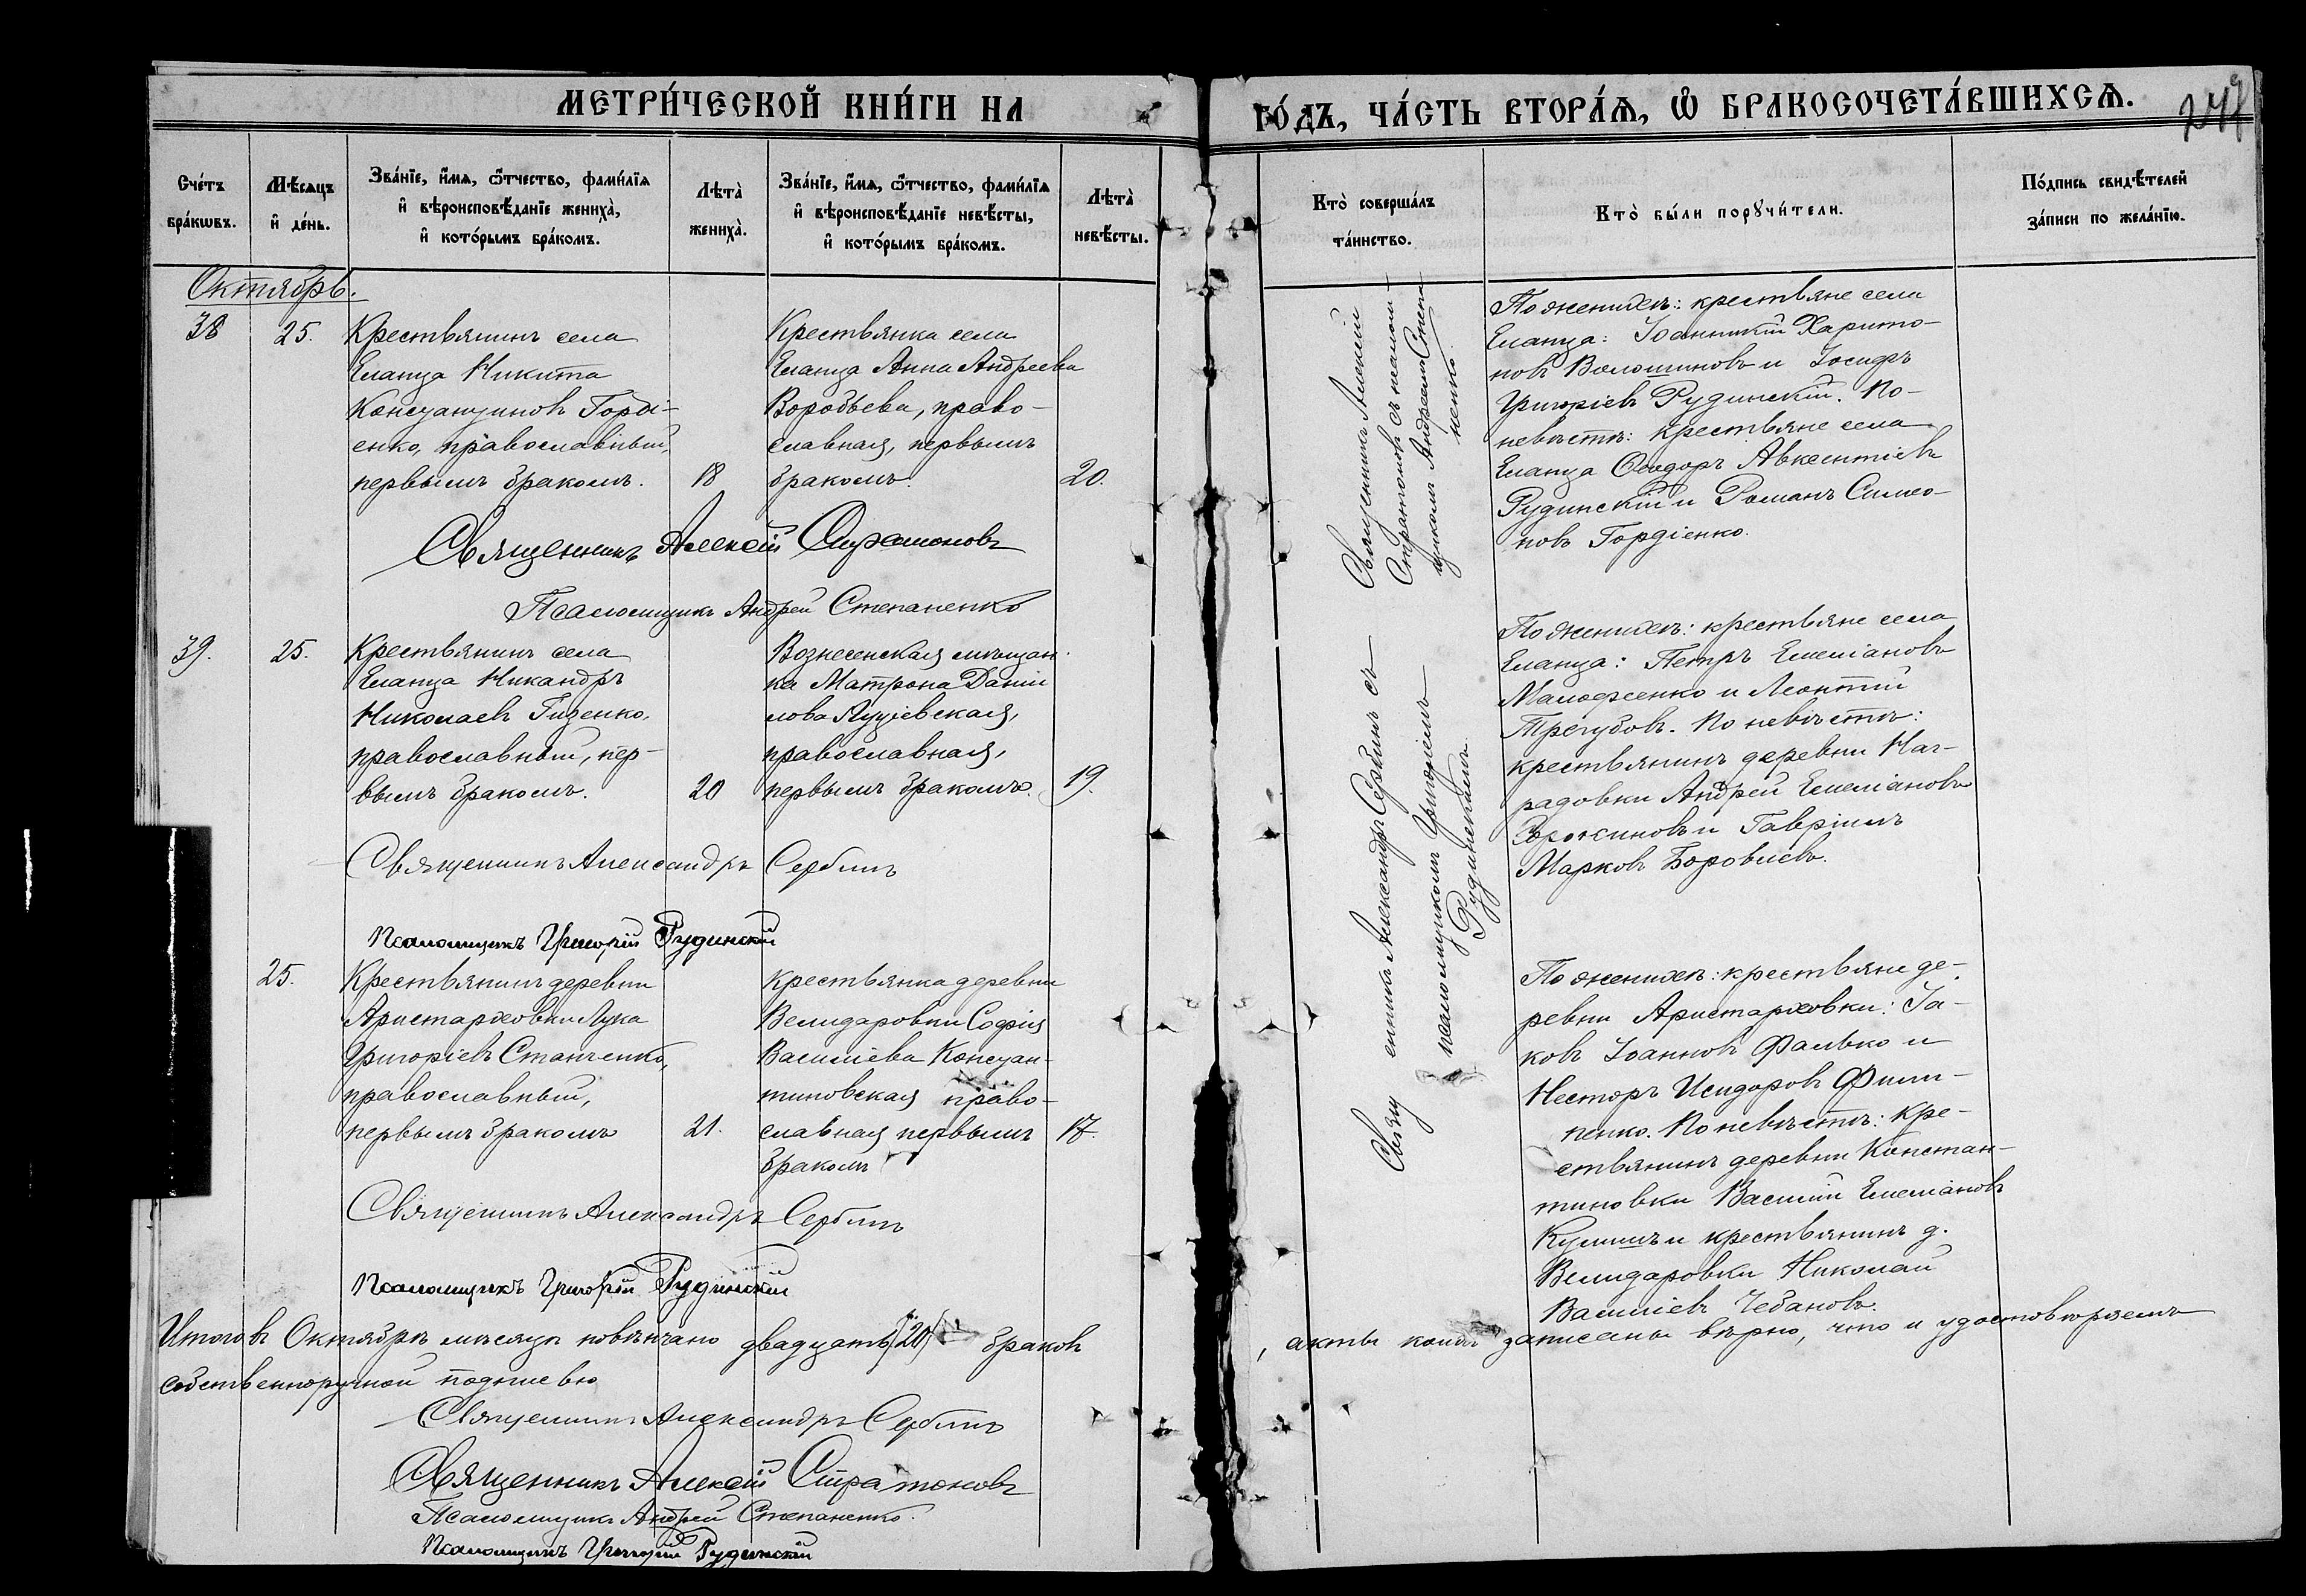 МЕТРИ́ЧЕСКОЙ КНИ́ГИ НА
ГО́ДЪ, ЧА́СТЬ ВТОРА́Ѧ, Ѽ БРАКОСОЧЕТА́ВШИХСѦ.
Сче́тъ
бра́кѡвъ.
Мѣ́сѧцъ
и҆ де́нь.
Зва́нїе, и҆́мѧ, ѻ҆́тчество, фами́лїѧ
и҆ вѣроисповѣ́данїе жениха̀,
и҆ кото́рымъ бра́комъ.
Лѣта̀
жениха̀.
Зва́нїе, и҆́мѧ, ѻ҆́тчество, фами́лїѧ
и҆ вѣроисповѣ́данїе невѣ́сты,
и҆ кото́рымъ бра́комъ.
Лѣта̀
невѣ́сты.
Кто̀ соверша́лъ
та́инство.
Кто̀ бы́ли порꙋчи́тели.
По́дпись свидѣ́телей
за́писи по жела́нїю.
Октябрь.
38
25.
Крестьянинъ села
Еланца Никита
Константиновъ Горді-
енко, православный,
первымъ бракомъ.
18
Крестьянка села
Еланца Анна Андреева
Воробьева, право-
славная, первымъ
бракомъ.
20.
Священникъ Алексій
Стратоновъ съ псалом-
щикомъ Андреемъ Степа-
ненко.
По женихѣ: крестьяне села
Еланца: Іоанникій Харито-
новъ Волошиновъ и Іосифъ
Григоріевъ Рудинскій. По-
невѣстѣ: крестьяне села
Еланца Ѳеодоръ Авксентіевъ
Рудинскій и Романъ Симео-
новъ Гордіенко.
Священникъ Алексій Стратоновъ
Псаломщикъ Андрей Степаненко
39.
25.
Крестьянинъ села
Еланца Никандръ
Николаевъ Гизенко,
православный, пер-
вымъ бракомъ.
20
Вознесенская мѣщан-
ка Матрона Даніи
лова
православная,
первымъ бракомъ.
19.
Священникъ Александръ Сербинъ съ
псаломщикомъ Григоріемъ
Рудинскимъ.
По женихѣ: крестьяне села
Еланца: Петръ Емеліановъ
и Леонтій
Трегубовъ. По невѣстѣ:
крестьянинъ деревни Наг-
радовки Андрей Емеліановъ
и Гавріилъ
Марковъ
Священникъ Александръ Сербинъ
Псаломщикъ Григорій Рудинскій
25.
Крестьянинъ деревни
Аристарховки Лука
Григоріевъ Станченко,
православный,
первымъ бракомъ
21.
Крестьянка деревни
Велидаровки Софія
Василіева Констан-
тиновская право-
славная первымъ
бракомъ
17.
По женихѣ: крестьяне де-
ревни Аристарховки: Іа-
ковъ Іоанновъ Фалько и
Несторъ Исидоровъ Фили-
пенко. По невѣстѣ: кре-
стьянинъ деревни Констан-
тиновки Василій Емеліановъ
Кулишъ и крестьянинъ д.
Велидаровки Николай
Василіевъ Чебановъ.
Священникъ Александръ Сербинъ
Псаломщикъ Григорій Рудинскій
Итого въ Октябрѣ мѣсяцѣ повѣнчано двадцать (20) браковъ, акты коихъ записаны вѣрно, что и удостовѣряемъ
собственноручной подписью
Священникъ Александръ Сербинъ
Священникъ Алексій Стратоновъ
Псаломщикъ Андрей Степаненко.
Псаломщикъ Григорій Рудинскій